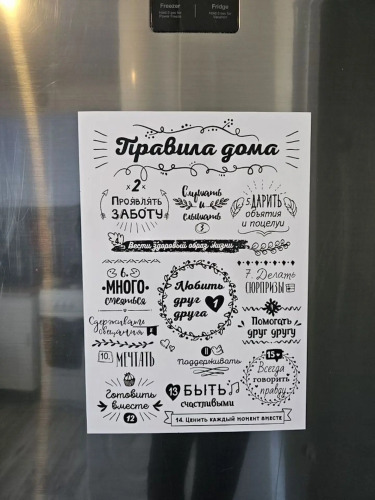 Freezer
Fridge
Правила дома
x2x
Проявлять
ЗАБОТУ
Слушать
и
слышать
3
5. ДАРИТЬ
объятия
и поцелуи
Вести здоровый образ жизни
6.
•МНОГО•
смеяться
Любить
друг
друга
1
7. Делать
СЮРПРИЗЫ
Сдерживать
обещания
Помогать
друг другу
10. МЕЧТАТЬ
11
Поддерживать
15
Всегда
говорить
правду
Готовить
вместе
12
13 БЫТЬ
счастливыми
14. Ценить каждый момент вместе